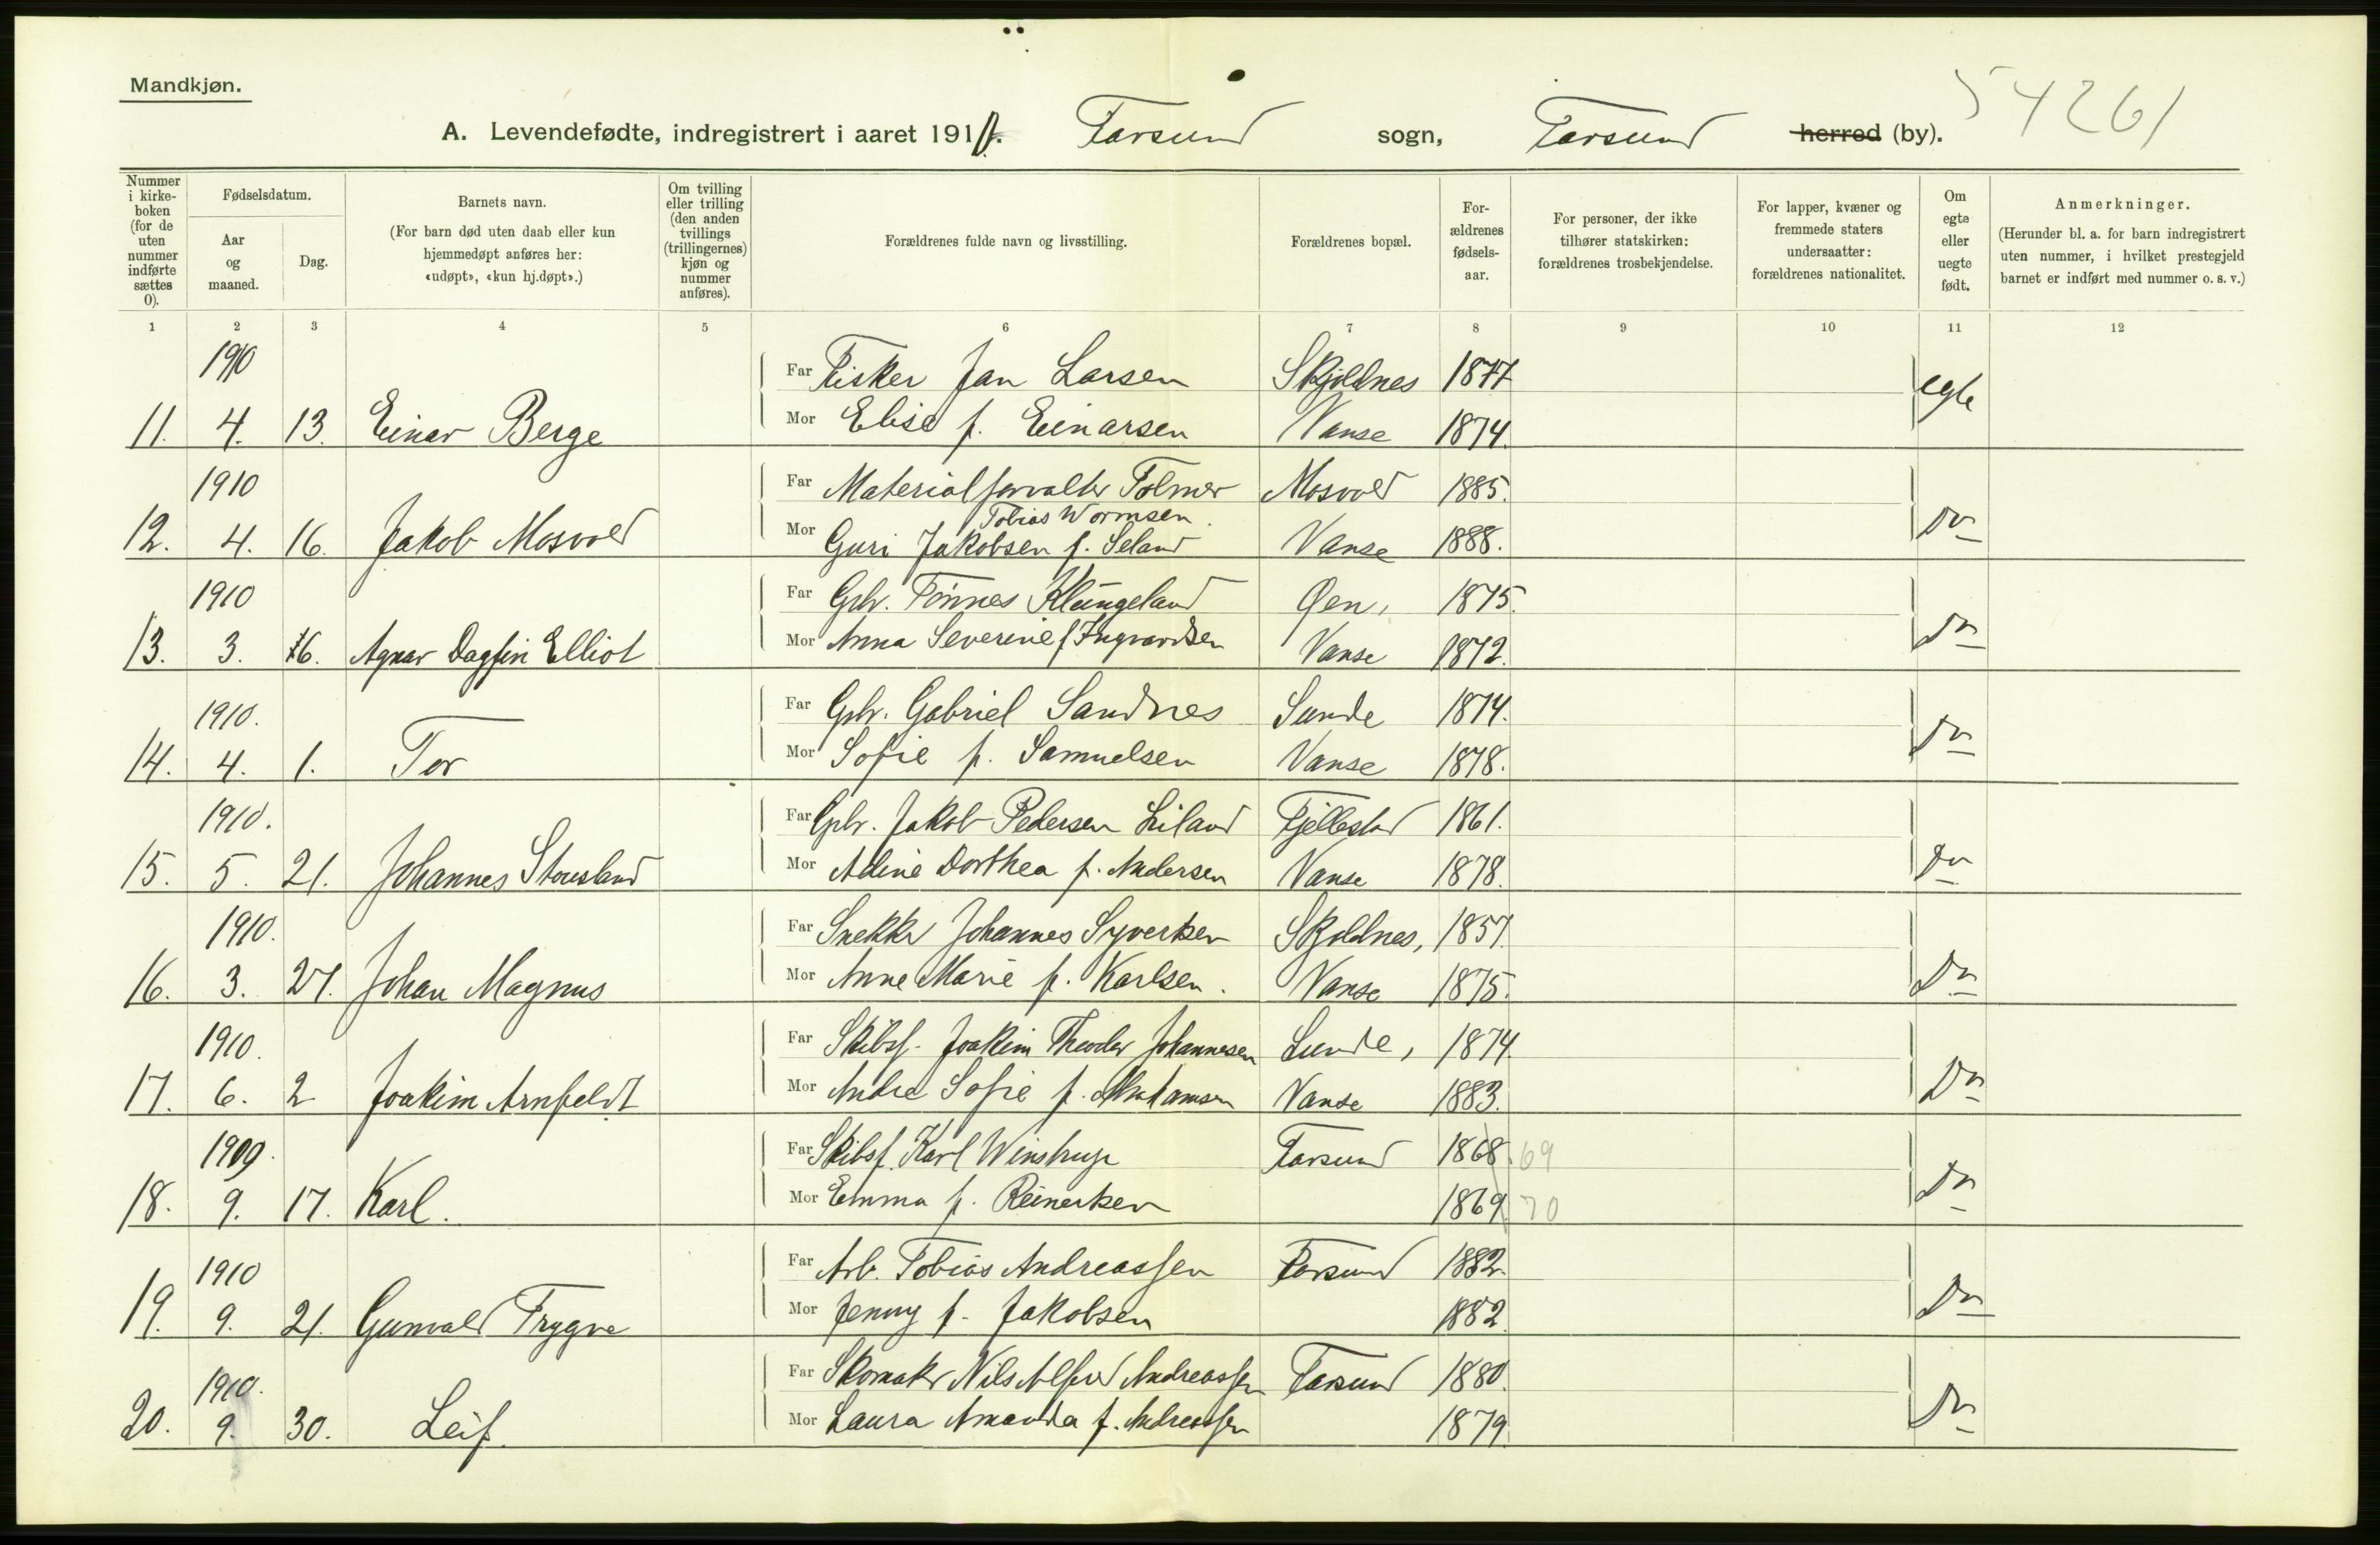 Mandkjøn.
54261
A. Levendefødte, indregistrert i aaret 191 Farsund sogn, Farsund herred (by).
Nummer i kirkeboken (for de uten nummer indførte sættes 0).
Fødselsdatum.
Aar og maaned.
Dag.
Barnets navn.
(For barn død uten daab eller kun hjemmedøpt anføres her: «udøpt», «kun hj.døpt».)
Om tvilling eller trilling (den anden tvillings (trillingernes) kjøn og nummer anføres).
Forældrenes fulde navn og livsstilling.
Forældrenes bopæl.
Forældrenes fødselsaar.
For personer, der ikke tilhører statskirken: forældrenes trosbekjendelse.
For lapper, kvæner og fremmede staters undersaatter: forældrenes nationalitet.
Om egte eller uegte født.
Anmerkninger.
(Herunder bl. a. for barn indregistrert uten nummer, i hvilket prestegjeld barnet er indført med nummer o. s. v.)
1 2 3 4 5 6 7 8 9 10 11 12
1910 Far Fisker Jan Larsen Skjoldnes 1877 egte
11. 4. 13. Einar Berge Mor Elise f. Einarsen Vanse 1874.
1910 Far Materialforvalter Tolmer Mosvold 1885. Do
Tobias Wormsen.
12. 4. 16. Jakob Mosvold Mor Guri Jakobsen f. Seland Vanse 1888.
1910 Far Gbr. Tönnes Klungeland Øen, 1875. Do
13. 3. 16. Agnar Dagfin Elliot Mor Anna Severine f Ingvardsen Vanse 1872.
1910. Far Gbr. Gabriel Sandnes Sunde 1874. Do
14. 4. 1. Tor Mor Sofie f. Samuelsen Vanse 1878.
1910. Far Gbr. Jakob Pedersen Liland Fjellestad 1861. Do
15. 5. 21. Johannes Stousland Mor Adine Dorthea f. Andersen Vanse 1878.
1910. Far Snekker Johannes Syvertsen Skjoldnes, 1857. Do
16. 3. 27. Johan Magnus Mor Anne Marie f. Karlsen. Vanse 1875.
1910. Far Skibsf. Joakim Theodor Johannesen Lunde, 1874 Do
17. 6. 2 Joakim Arnfeldt Mor Andrea Sofie f. Abrahamsen Vanse 1883.
1909. Far Skibsf. Karl Winstrup Farsund 1868. 69 Do
18. 9. 17. Karl. Mor Emma f. Reinertsen 1869 70
1910 Far Arb. Tobias Andreassen Farsund 1882. Do
19. 9. 21. Gunvald Trygve Mor Jenny f. Jakobsen 1882.
1910. Far Skomaker Nils Alfred Andreassen Farsund 1880. Do
20. 9. 30. Leif. Mor Laura Amanda f. Andreassen 1879.